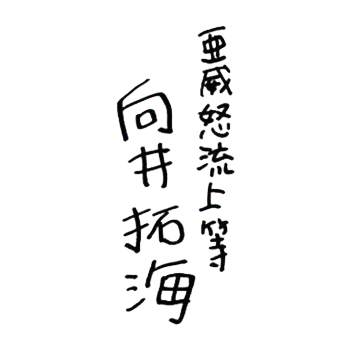 亜威怒流上等
向井拓海